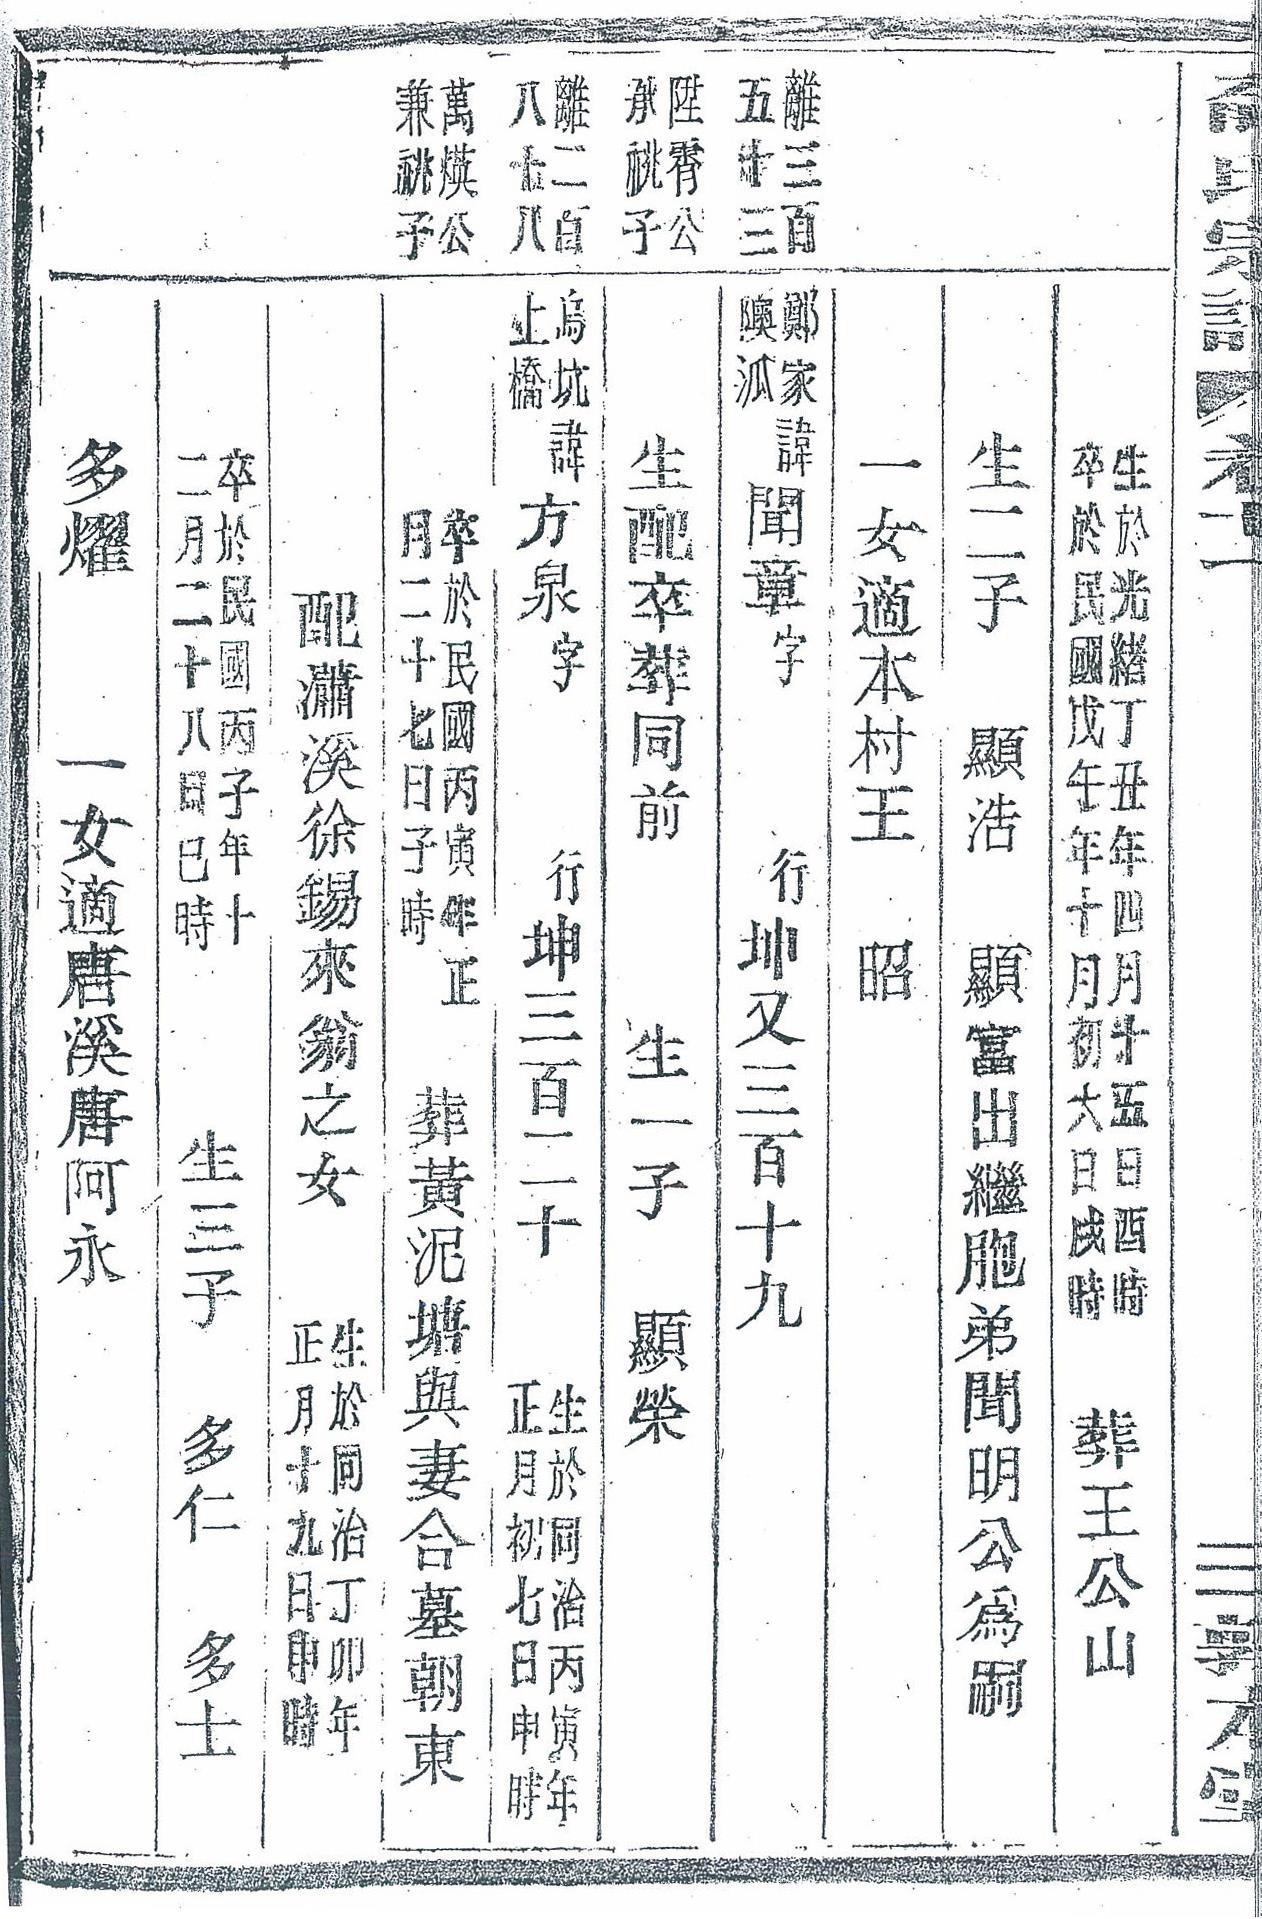 生於光緒丁丑年四月廿五日酉時
卒於民國戊午年十月初六日戌時
葬王公山
生二子 顯浩 顯富出繼胞弟聞明公為嗣
一女適本村王 昭
離三百
五十三
鄭家
隩派
諱聞章字 行坤又三百十九
陞霄公
承祧子
生配卒葬同前 生一子 顯榮
離二百
八十八
烏坑
上橋
諱方泉字 行坤三百二十
生於同治丙寅年
正月初七日申時
萬煐公
兼祧子
卒於民國丙寅年正
月二十七日子時
葬黃泥塘與妻合墓朝東
配瀟溪徐錫來翁之女
生於同治丁卯年
正月十九日申時
卒於民國丙子年十
二月二十八日巳時
生三子 多仁 多士
多燿 一女適唐溪唐阿永